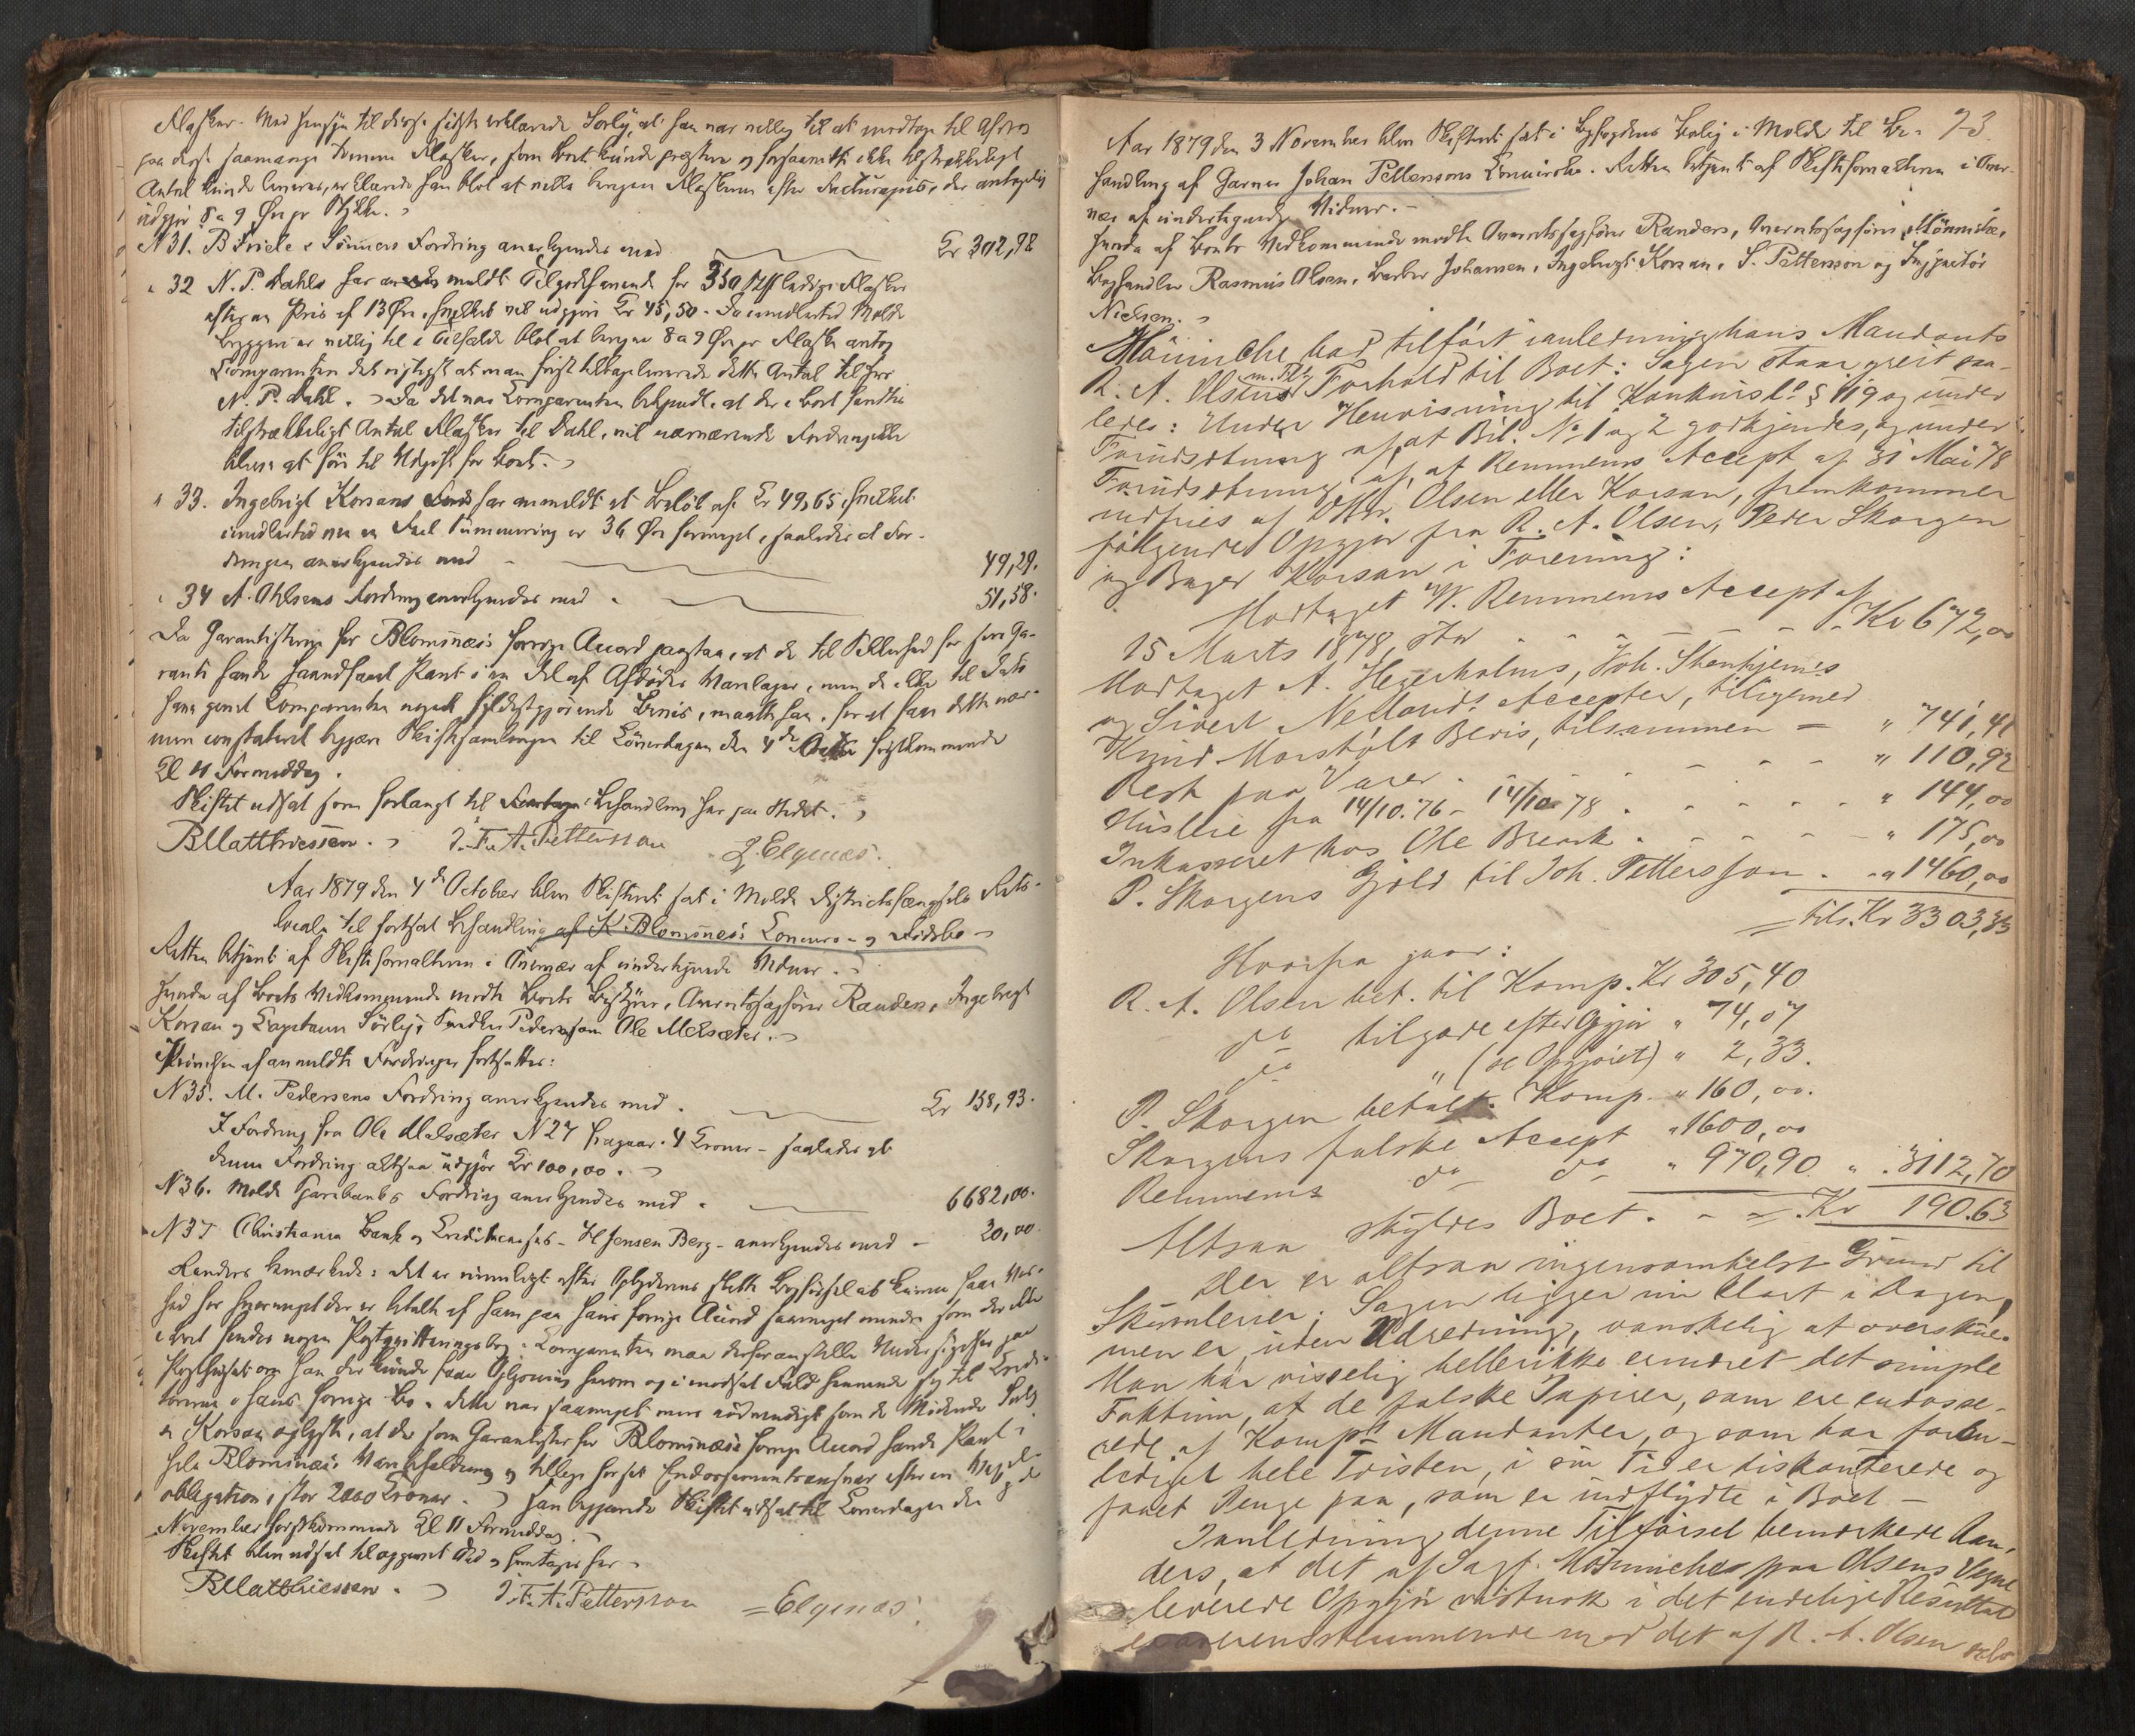 Flasker. Med Hensyn til disse sidste erklærede Sørlig, at han var villig til at modtage til Afdrag
paa disse saamange tomme Flasker, som Boet kunde præstere og forsaavidt ikke tilstrækkeligt
Antal kunde leveres, erklærede han blot at ville beregne Flaskerne efter Facturapris, der antagelig
udgjør 8 a 9 Øre pr Stykke.
N 31. B Friele & Sønners Fordring anerkjendes med Kr 302,98
" 32 N. P. Dahls har anmeldt Tilgodehavende for 350 Stk ledige Flasker
efter en Pris af 13 Øre, hvilket vil udgjøre Kr 45,50. Da imidlertid Molde
Bryggeri er villig til i Tilfælde blot at beregne 8 a 9 Øre pr Flaske antog
Comparenten det rigtigst at man heist tilbageleverede dette Antal til Hr
N. P. Dahl. Da det var Comparenten bekjendt, at der i Boet fandtes
tilstrækkeligt Antal Flasker til Dahl, vil nærværende Fordring ikke
blive at føre til Udgift for Boet.
" 33. Ingebrigt Korsans har anmeldt et Beløb af Kr 49,65, hvilket
imidlertid ved en Feil Summering er 36 Øre formeget, saaledes at For-
dringen anerkjendes med 49,29.
" 34 A. Ohlsens Fordring anerkjendes med 51,58.
Da Garantisterne for Blomsnæs's forrige Accord paastaa, at de til Sikkerhed for sin Ga-
ranti havde haandfaaet Pant i en Del af Afdødes Varelager, men de ikke til Dato
have givet Comparenten noget fyldestgjørende Bevis, maatte han, for at faae dette nær-
mere constateret begjære Skiftesamlingen til Lørdagen den 4de Octbr førstkommende
Kl 11 Formiddag.
Skiftet udsat som forlangt til Behandling her paa Stedet.
B Matthiessen. J. F. A. Pettersson J. Elgenæs.
Aar 1879 den 4de October blev Skifteret sat i Molde Districtsfængsels Rets-
locale til fortsat Behandling af K. Blomsnæs's Concurs- og Dødsbo
Retten betjent af Skifteforvalteren i Overvær af undertegnede Vidner.
Hvorda af Boets Vedkommende mødte Boets Bestyrer, Overretssagfører Randers, Ingebrigt
Korsan og Capitain Sørlig, Ole Melsæter.
Prøvelsen af anmeldte Fordringer fortsattes:
N 35. M. Pedersens Fordring anerkjendes med Kr 138,93.
I Fordring fra Ole Melsæter N 27 fragaar 4 Kroner - saaledes at
denne Fordring altsaa udgjør Kr 100,00.
N 36. Molde Sparebanks Fordring anerkjendes med 6682,00.
N 37 Christiania Bank og Creditkasses - Hl Jensen Berg - anerkjendes med 20,00.
Randers bemærkede: det er umuligt efter Opbyderens slette Bogførsel at kunne faae Vis-
hed for hvormeget der er betalt af ham paa hans forrige Accord saameget mindre som der ikke
i Boet findes nogen Postqvitteringsbog. Comparenten maa derfor anstille Undersøgelser paa
Posthuset om han der kunde faae Oplysning herom og i modsat Fald henvende sig til Credi-
torerne i hans forrige Bo. Dette var saameget mere nødvendigt som de Mødende Sørlig
og Korsan oplyste, at de som Garantister for Blomsnæs's forrige Accord havde Pant i
hele Blomsnæs's Varebeholdning og tillige forsat Endossement transport efter en
obligation, stor 2000 Kroner. Han begjærede Skiftet udsat til Lørdagen den
November førstkommende Kl 11 Formiddag.
Skiftet blev udsat til opgivet Tid og foretages her.
B Matthiessen. J. F. A. Pettersson Elgenæs.
73.
Aar 1879 den 3 November blev Skifteret sat i Byfogdens Bolig i Molde til Be-
handling af Garver Johan Pettersons Concursbo. Retten betjent af Skifteforvalteren i Over-
vær af undertegnede Vidner.
Hvorda af Boets Vedkommende mødte Overretssagfører Randers, Overretssagfører Mönniche,
Boghandler Rasmus Olsen, Barber Johansen, Ingebrigt Korsan, S. Petterson og Inqvisitör
Nielsen.
Mönniche bad tilført i anledning hans Mandants
R. A. Olsens m. Fl's Forhold til Boet: Sagen staar greit saa-
ledes: Under Henvisning til Konkurslo § 119 og under
Forudsætning af, at Bil. No 1 og 2 godkjendes, og under
Forudsætning af, at Remmems Accept af 31 Mai 78
indfries af Olsen eller Korsan, fremkommer
følgende Opgjør fra R. A. Olsen, Peder Skorgen
og Bager Korsan i Forening:
Modtaget W. Remmems Accept af
15 Marts 1878, stor Kr 672,00
Modtaget A. Hegerholms, Joh. Stenhjems
og Sivert Nellands Accepter, tilligemed
Knud Morstöls Bevis, tilsammen " 741,41
Rest paa Varer " 110,92
Husleie fra 14/10.76 - 14/10 78 " 144,00
Inkasseret hos Ole Brenk " 175,00
P. Skorgens Gjöld til Joh. Pettersson " 1460,00
tils. Kr 3303,33
Hvorfra gaar:
R. A. Olsen bet. til Komp. Kr 305,40
do tilgode efter Opgjør " 74,07
do " (se Opgjøret) " 2,33.
P. Skorgen betalt Komp. " 160,00.
Skorgens falske Accept " 1600,00
Remmems do do " 970,90 " 3112,70
Altsaa skyldes Boet Kr 190.63
Der er altsaa ingensomhelst Grund til
Skrupler. Sagen ligger nu klart i Dagen,
men er, uden Udredning, vanskelig at overskue.
Man har visselig hellerikke erindret det simple
Faktum, at de falske Papirer, som ere endosse-
rede af Komp's Mandanter, og som har foran-
lediget hele Tvisten, i sin Tid er diskonterede og
faaet Penge paa, som er indflydte i Boet -
I anledning denne Tilførsel bemærkede Ran-
ders, at det af Sagf. Mönniche paa Olsens Vegne
leverede Opgjør vistnok i det endelige Resultat
er overensstemmende med det af R. A. Olsen selv